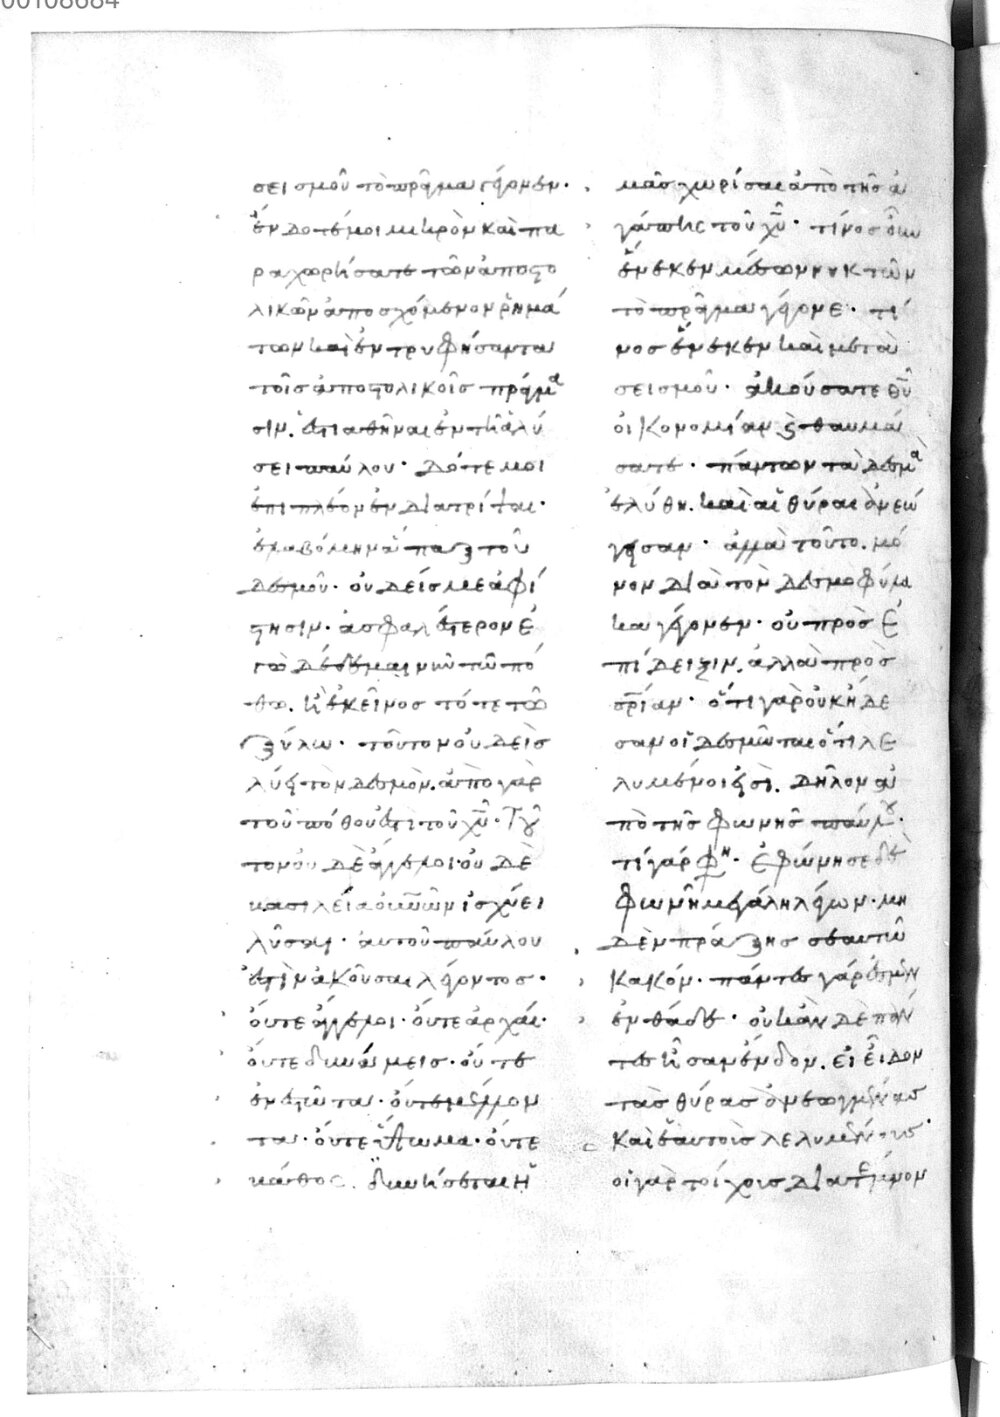 00108684
σεισμοῦ τὸ πρᾶγμα γέγονεν.
ἔνδοτέ μοι μικρὸν καὶ πα
ραχωρήσατε τῶν ἀποστο
λικῶν ἀποσχόμενον ῥημά
των καὶ ἐντρυφήσαντα
τοῖς ἀποστολικοῖς πράγμα
σιν. ἑστιαθῆναι ἐν τῆ ἁλύ
σει παύλου· δότε μοι
ἐπιπλέον ἐνδιατρίψαι·
ἐλαβόμην ἅπαξ τοῦ
δεσμοῦ· οὐδείς με ἀφί
στησιν· ἀσφαλέστερον ἐ
γὼ δέδεμαι νῦν τῶ πό
θω. ἢ ἐκεῖνος τότε τῶ
ξύλω· τοῦτον οὐδεὶς
λύει τὸν δεσμὸν. ἀπὸ γὰρ
τοῦ πόθου ἐστὶ τοῦ χυ· τοῦ
τον οὐδὲ ἄγγελοι· οὐδὲ
βασιλεία οὐνῶν ἰσχύει
λῦσαι· αὐτοῦ παύλου
ἔστιν ἀκοῦσαι λέγοντος·
οὔτε ἄγγελοι· οὔτε ἀρχαί·
οὔτε δυνάμεις· οὔτε
ἐνεστῶτα· οὔτε μέλλον
τα· οὔτε ὕψωμα· οὔτε
βάθος. δυνήσεται ἡ
μᾶς χωρίσαι ἀπὸ τῆς ἀ
γάπης τοῦ χυ· τίνος οὖν
ἕνεκεν μέσων νυκτῶν
τὸ πρᾶγμα γέγονε· τί
νος ἕνεκεν καὶ μετὰ
σεισμοῦ· ἀκούσατε θυ
οἰκονομίαν καὶ θαυμά
σατε· πάντων τὰ δεσμὰ
ἐλύθη. καὶ αἱ θύραι ἀνεώ
γησαν· ἀλλὰ τοῦτο. μό
νον διὰ τὸν δεσμοφύλα
κα γέγονεν· οὐ πρὸς ἐ
πίδειξιν. ἀλλὰ πρὸς
σρίαν· ὅτι γὰρ οὐκ ἤδε
σαν οἱ δεσμῶται ὅτι λε
λυμένοι εἰσὶ. δῆλον ἀ
πὸ τῆς φωνῆς παύλου·
τί γάρ φη· ἐφώνησε δὲ
φωνῆ μεγάλη λέγων· μη
δὲν πράξης σεαυτῶ
κακόν· πάντες γάρ ἐσμὲν
ἐνθάδε· οὐκ ἂν δὲ πάν
τες ἦσαν ἔνδον. εἰ εἶδον
τὰς θύρας ἀνεωγμένας
καὶ ἑαυτοὺς λελυμένους·
οἱ γὰρ τοίχους διατέμνον